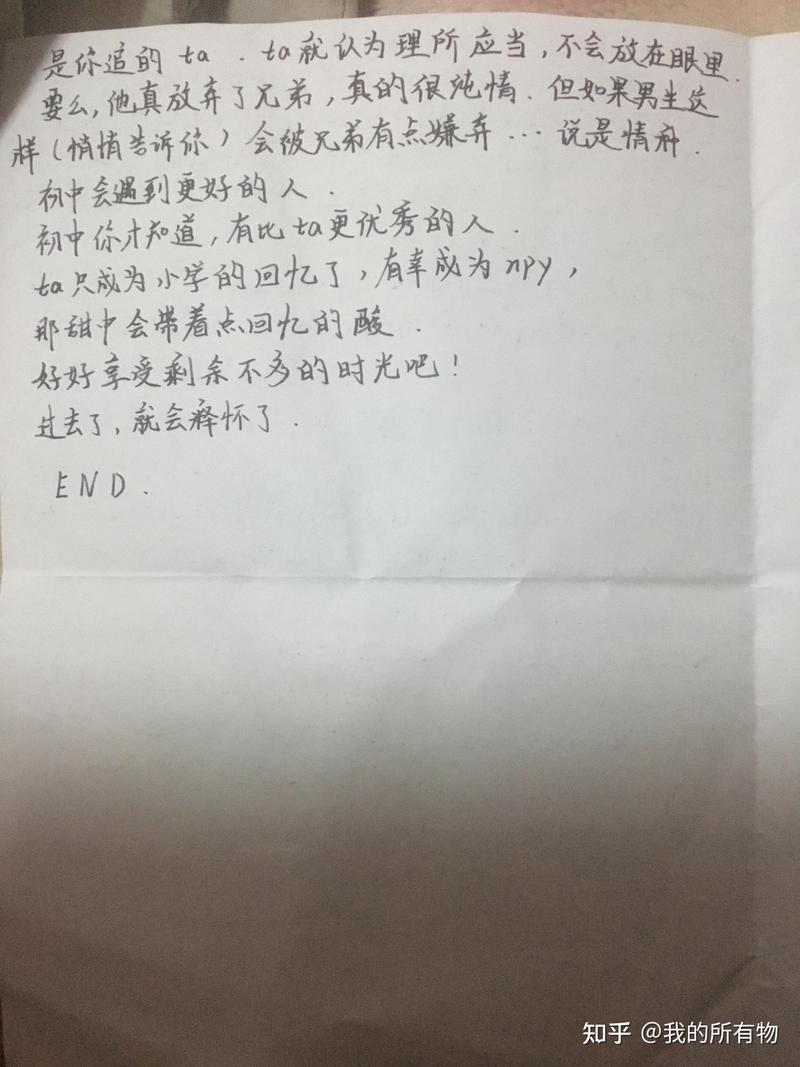 是你追的 ta . ta就认为理所应当,不会放在眼里.
要么,他真放弃了兄弟,真的很纯情.但如果男生这
样(悄悄告诉你)会被兄弟有点嫌弃…说是情种.
初中会遇到更好的人.
初中你才知道,有比ta更优秀的人.
ta只成为小学的回忆了,有幸成为npy,
那甜中会带着点回忆的酸.
好好享受剩余不多的时光吧!
过去了,就会释怀了.
END.
知乎 @我的所有物